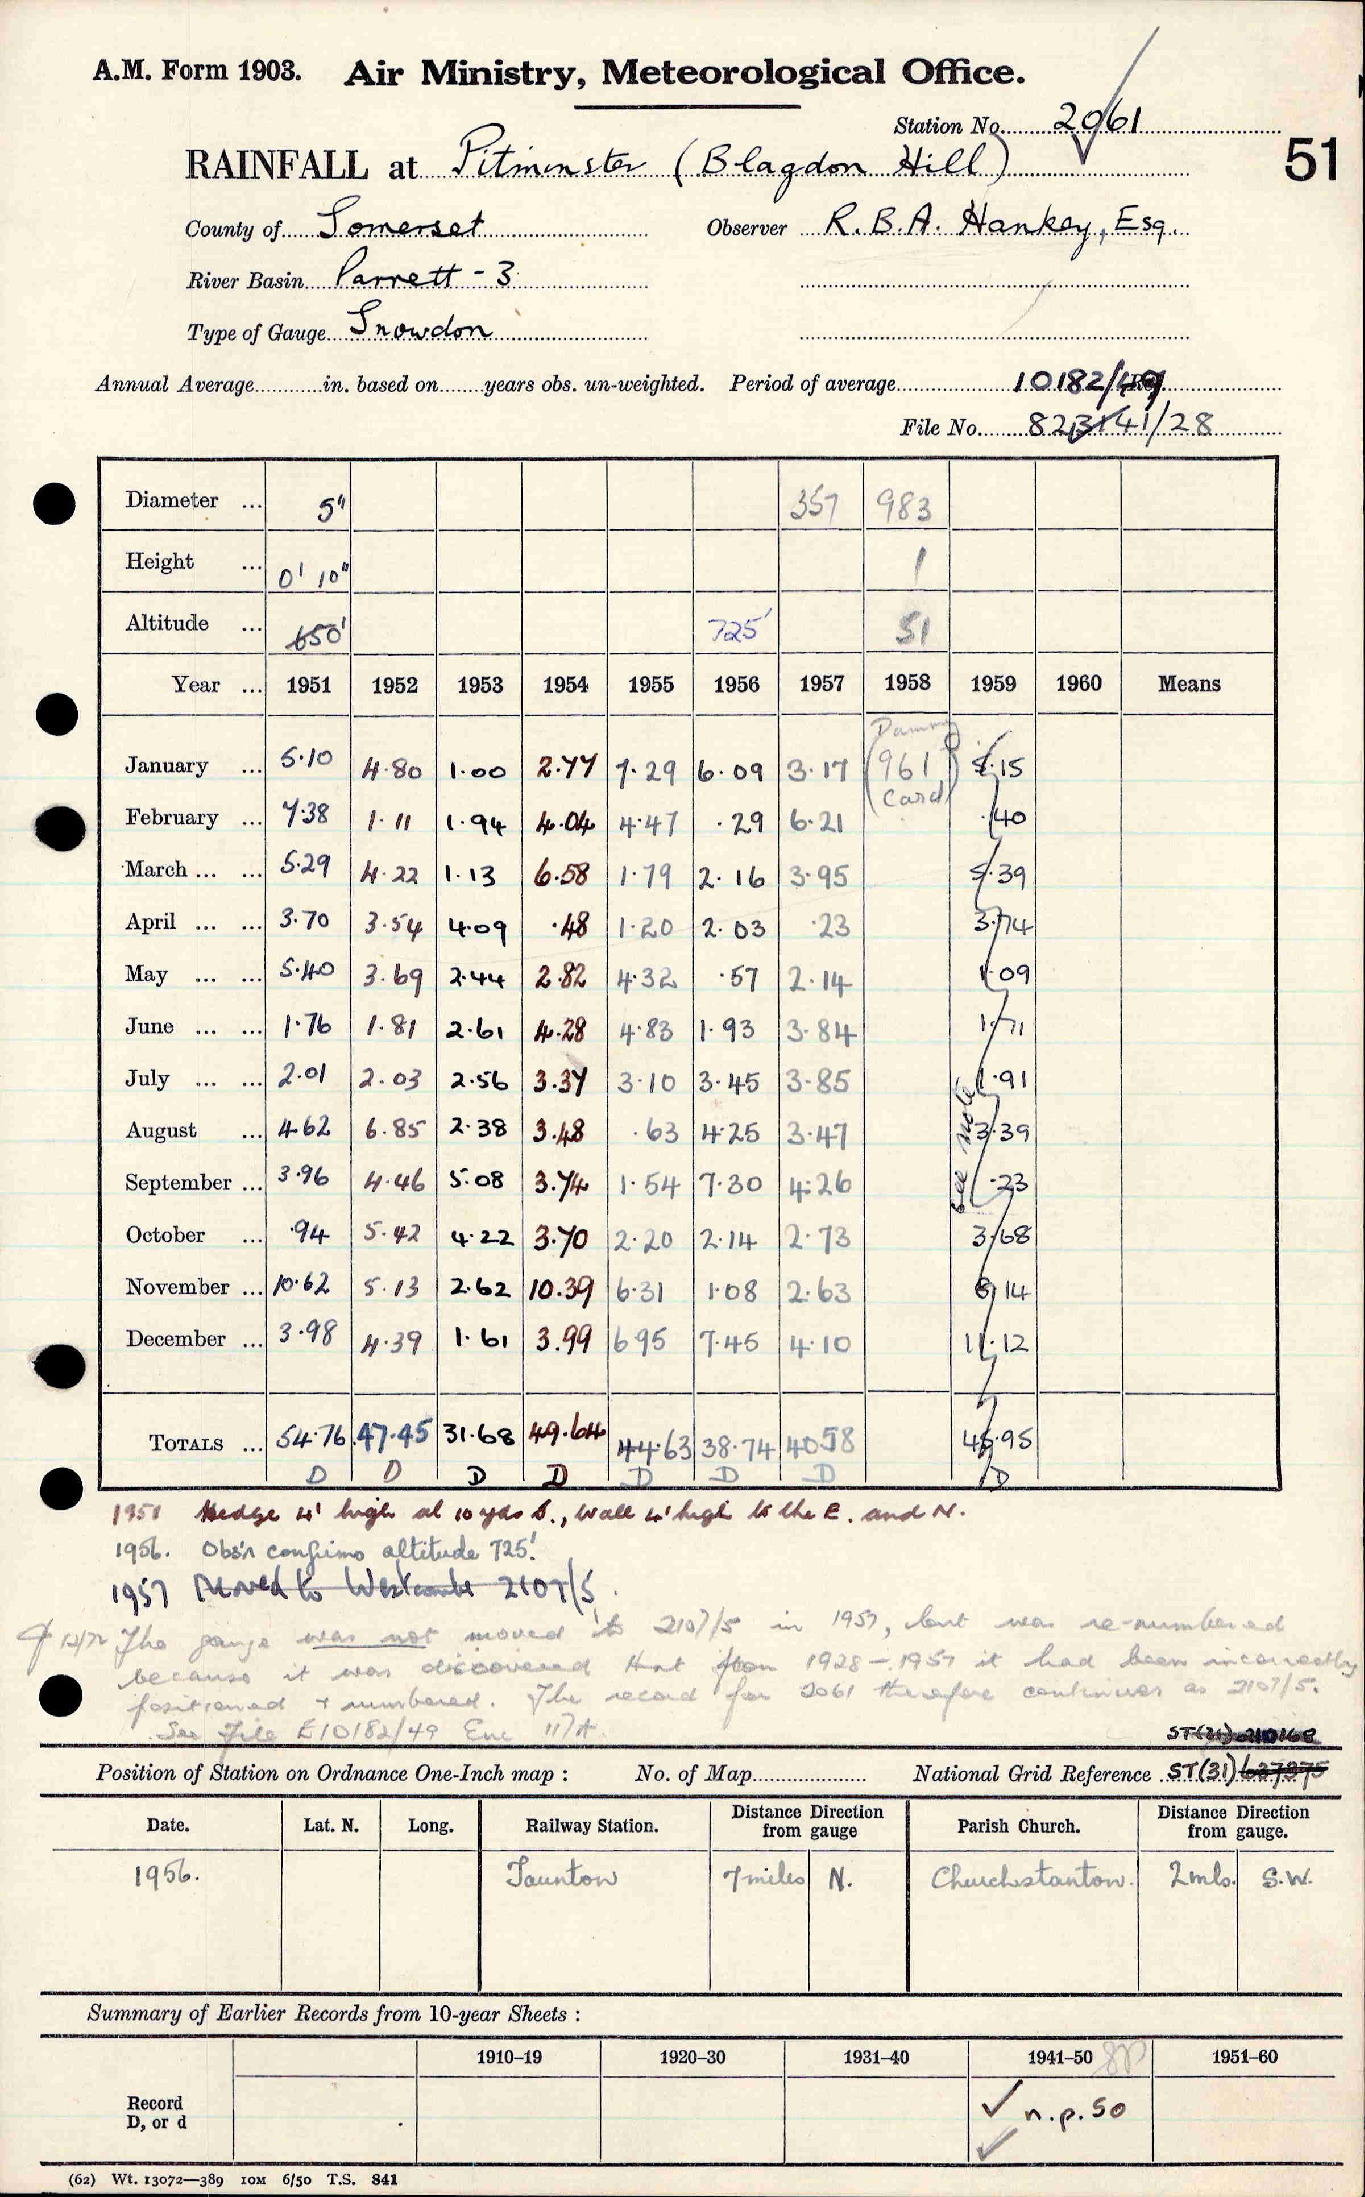 A.M. Form 1903. Air Ministry, Meteorological Office.
Station No. 2061
51
RAINFALL at Pitminster (Blagdon Hill)
County of Somerset Observer R.B.A. Hankey, Esq.
River Basin Parrett - 3
Type of Gauge Snowdon
Annual Average in. based on years obs. un-weighted. Period of average 10182/49
File No. 823141/28
Diameter ... 5" 357 983
Height ... 0' 10" 1
Altitude ... 650' 725' 51
Year ... 1951 1952 1953 1954 1955 1956 1957 1958 1959 1960 Means
Dummy
January ... 5.10 4.80 1.00 2.77 7.29 6.09 3.17 (961 5.15
card)
February ... 7.38 1.11 1.94 4.04 4.47 .29 6.21 .40
March ... ... 5.29 4.22 1.13 6.58 1.79 2.16 3.95 5.39
April ... ... 3.70 3.54 4.09 .48 1.20 2.03 .23 3.74
May ... ... 5.40 3.69 2.44 2.82 4.32 .57 2.14 1.09
June ... ... 1.76 1.81 2.61 4.28 4.83 1.93 3.84 1.71
July ... ... 2.01 2.03 2.56 3.37 3.10 3.45 3.85 1.91
August ... 4.62 6.85 2.38 3.48 .63 4.25 3.47 3.39
see note
September ... 3.96 4.46 5.08 3.74 1.54 7.30 4.26 .23
October ... .94 5.42 4.22 3.70 2.20 2.14 2.73 3.68
November ... 10.62 5.13 2.62 10.39 6.31 1.08 2.63 8.14
December ... 3.98 4.39 1.61 3.99 6.95 7.45 4.10 11.12
TOTALS ... 54.76 47.45 31.68 49.64 44.63 38.74 40.58 45.95
D D D D D D D D
1951 Hedge 4' high at 10 yds S., Wall 4' high to the E. and N.
1956. Obs'r confirms altitude 725'.
1957 Moved to Westcombe 2107/5.
12/72 The gauge was not moved to 2107/5 in 1957, but was re-numbered
because it was discovered that from 1928-1957 it had been incorrectly
positioned & numbered. The record for 2061 therefore continues as 2107/5.
See File E10182/49 Enc 117A.
ST(31) 210168
Position of Station on Ordnance One-Inch map : No. of Map National Grid Reference ST(31) 637375
Date. Lat. N. Long. Railway Station. Distance Direction from gauge Parish Church. Distance Direction from gauge.
1956. Taunton 7 miles N. Churchstanton. 2 mls. S.W.
Summary of Earlier Records from 10-year Sheets :
1910–19 1920–30 1931–40 1941–50 1951–60
Record
D, or d n.p. 50
(62) Wt. 13072—389 10M 6/50 T.S. 841